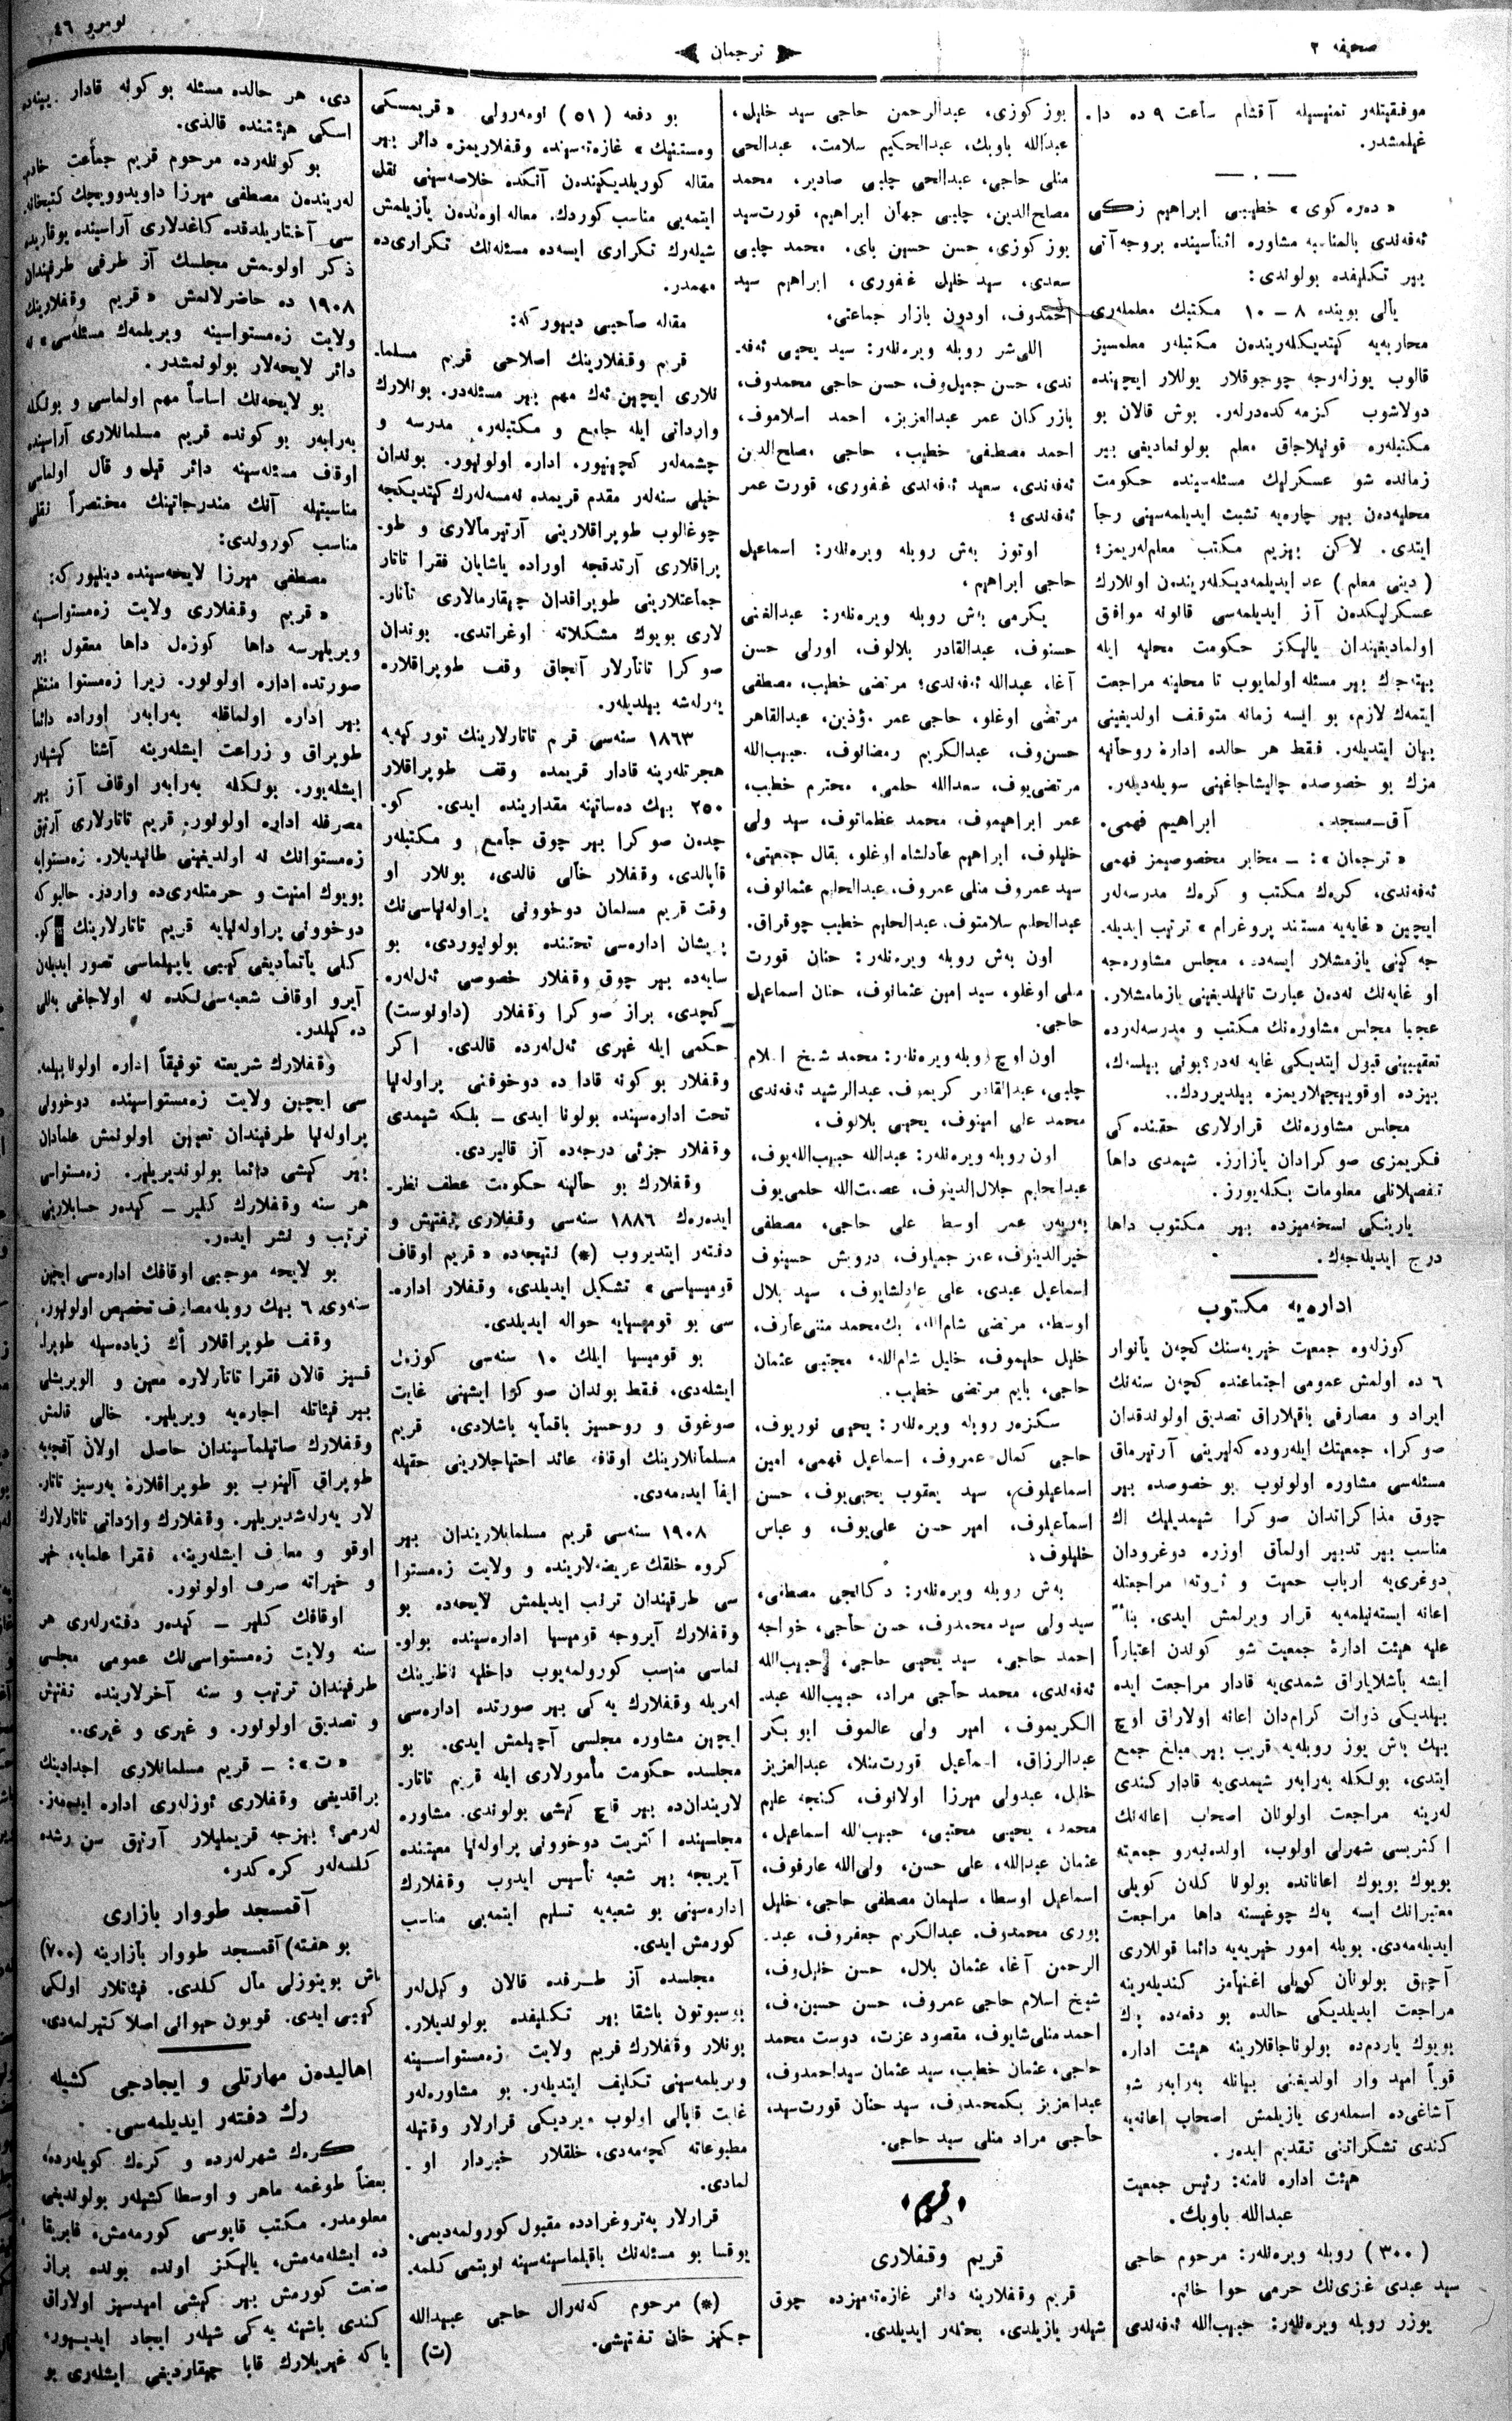 صحیفه ٢
ترجمان
نومرو ٤٦
موفقیتلەر تمنیسیله آقشام ساعت ٩ ده دا.
غیلمشدر.
« دەرە کوی » خطیبی ابراهیم زکی
ئەفەندی بالمناسبه مشاوره اثناسینده بروجه آتی
بیر تکلیفده بولوندی:
یالی بوینده ٨ – ١٠ مکتبك معلملەری
محاربەیه کیتدیکلەریندەن مکتبلەر معلمسیز
قالوب یوزلەرجه چوجوقلار یوللار ایچینده
دولاشوب کزمەکدەدرلەر. بوش قالان بو
مکتبلەرە قویلاجاق معلم بولونمادیغی بیر
زمانده شو عسکرلیك مسئلەسینده حکومت
محلیەدەن بیر چارەیه تشبث ایدیلمەسینی رجا
ایتدی. لاکن بیزیم مکتب معلملەریمز؛
( دینی معلم ) عد ایدیلمەدیکلەریندەن اونلارك
عسکرلیکدەن آز ایدیلمەسی قانونه موافق
اولمادیغیندان یالکز حکومت محلیه ایله
بیتەجك بیر مسئله اولمایوب تا محلینه مراجعت
ایتمەك لازم، بو ایسه زمانه متوقف اولدیغینی
بیان ایتدیلەر. فقط هر حالده ادارۀ روحانیه
مزك بو خصوصده چالیشاجاغینی سویلەدیلەر.
آق–مسجد. ابراهیم فهمی.
« ترجمان »: – مخابر مخصوصیمز فهمی
ئەفەندی، کرەك مکتب و کرەك مدرسەلەر
ایچین « غایەیه مستند پروغرام » ترتیب ایدیلە.
جەکینی یازمشلار ایسەدە، مجلس مشاورەجه
او غایەنك نەدەن عبارت تانیلدیغینی یازمامشلار.
عجبا مجلس مشاورەنك مکتب و مدرسەلەردە
تعقیبینی قبول ایتدیکی غایه نەدر؟ بونی بیلسەك،
بیزده اوقوییجیلاریمزە بیلدیردك..
مجلس مشاورەنك قرارلاری حقندەکی
فکریمزی صوکرادان یازارز. شیمدی داها
تفصیلاتلی معلومات بکلەیورز.
یارینکی نسخەمیزده بیر مکتوب داها
درج ایدیلەجەك.
ادارەیه مکتوب
کوزلەوە جمعیت خیریەسنك کچەن یانوار
٦ ده اولمش عمومی اجتماعنده کچەن سنەنك
ایراد و مصارفی باقیلاراق تصدیق اولوندقدان
صوکرا، جمعیتك ایلەرودە کەلیرینی آرتیرماق
مسئلەسی مشاوره اولونوب بو خصوصده بیر
چوق مذاکراتدان صوکرا شیمدیلیك اك
مناسب بیر تدبیر اولماق اوزرە دوغرودان
دوغری‌یه ارباب حمیت و ثروتە مراجعتله
اعانه ایستەنیلمەیه قرار ویرلمش ایدی. بناءً
علیه هیئت ادارۀ جمعیت شو کوندن اعتباراً
ایشه باشلایاراق شمدی‌یه قادار مراجعت ایده
بیلدیکی ذوات کرامدان اعانه اولاراق اوچ
بیك باش یوز روبلەیه قریب بیر مبلغ جمع
ایتدی، بولکله بەرابەر شیمدی‌یه قادار کندی
لەرینه مراجعت اولونان اصحاب اعانەنك
اکثریسی شهرلی اولوب، اولدنبەرو جمعیته
بویوك بویوك اعاناتده بولونا کلەن کویلی
معتبرانك ایسه پەك چوغیسنه داها مراجعت
ایدیلەمەدی. بویله امور خیریەیه دائما قوللاری
آچیق بولونان کویلی اغنیامز کندیلەرینه
مراجعت ایدیلدیکی حالده بو دفعەدە پك
بویوك یاردمدە بولوناجاقلارینه هیئت اداره
قویاً امید وار اولدیغنی بیانله بەرابەر شو
آشاغی‌ده اسملەری یازیلمش اصحاب اعانەیه
کندی تشکراتنی تقدیم ایدەر.
هیئت اداره نامنه: رئیس جمعیت
عبدالله باوبك.
( ٣٠٠ ) روبله ویرەنلەر: مرحوم حاجی
سید عبدی غزی‌نك حرمی حوا خانم.
یوزر روبله ویرەنلەر: حبیب‌الله ئەفەندی
بوز کوزی، عبدالرحمن حاجی سید خلیل،
عبدالله باوبك، عبدالحکیم سلامت، عبدالحی
منلی حاجی، عبدالحی چلبی صادیر، محمد
مصلح‌الدین، چلبی جهان ابراهیم، قورت‌سید
بوز کوزی، حسن حسین بای. محمد چلبی
سعدی، سید خلیل غفوری، ابراهیم سید
احمدوف، اودون بازار جماعتی،
اللی‌شر روبله ویرەنلەر: سید یحیی ئەفە.
ندی، حسن جمیل‌وف، حسن حاجی محمدوف،
بازرکان عمر عبدالعزیز، احمد اسلاموف،
احمد مصطفی خطیب، حاجی مصلح‌الدین
ئەفەندی، سعید ئەفەندی غفوری، قورت عمر
ئەفەندی؛
اوتوز بەش روبله ویرەنلەر: اسماعیل
حاجی ابراهیم،
یکرمی باش روبله ویرەنلەر: عبدالغنی
حسنوف، عبدالقادر بلالوف، اورلی حسن
آغا، عبدالله ئەفەندی؛ مرتضی خطیب، مصطفی
مرتضی اوغلو، حاجی عمر مؤذین، عبدالقاهر
حسن‌وف، عبدالکریم رمضانوف، حبیب‌الله
مرتضی‌یوف، سعدالله حلمی، محترم خطیب،
عمر ابراهیموف، محمد عظماتوف، سید ولی
خلیلوف، ابراهیم عادلشاه اوغلو، بقال جمعیتی،
سید عمروف منلی عمروف، عبدالحلیم عثمانوف،
عبدالحلیم سلامتوف، عبدالحلیم خطیب چوقراق.
اون بەش روبله ویرەنلەر: حنان قورت
منلی اوغلو، سید امین عثمانوف، حنان اسماعیل
حاجی.
اون اوچ روبله ویرەنلەر: محمد شیخ اسلام
چلبی، عبدالقادر کریموف، عبدالرشید ئەفەندی
محمد علی امینوف، یحیی بلالوف،
اون روبله ویرەنلەر: عبدالله حبیب‌الله‌یوف،
عبدالحلیم جلال‌الدینوف، عصمت‌الله حلمی‌یوف
بەربەر، عمر اوسطا علی حاجی، مصطفی
خیرالدینوف، عمر جمیلوف، درویش حسینوف
اسماعیل عبدی، علی عادلشایوف، سید بلال
اوسطه، مرتضی شام‌الله، بك‌محمد منلی‌عارف،
خلیل حلیموف، خلیل شام‌الله، مجتبی عثمان
حاجی، بایم مرتضی خطیب.
سکزەر روبله ویرەنلەر: یحیی نوریوف،
حاجی کمال عمروف، اسماعیل فهمی، امین
اسماعیلوف، سید یعقوب یحیی‌یوف، حسن
اسماعیلوف، امیر حسن علی‌یوف، و عباس
خلیلوف،
بەش روبله ویرەنلەر: دکانجی مصطفی،
سید ولی سید محمدوف، حسن حاجی، خواجه
احمد حاجی، سید یحیی حاجی، حبیب‌الله
ئەفەندی، محمد حاجی مراد، حبیب‌الله عبد.
الکریموف، امیر ولی عالموف ابو بکر
عبدالرزاق، اسماعیل قورت‌منلا، عبدالعزیز
خلیل، عبدولی میرزا اولانوف، کنجه علیم
محمد، یحیی محتبی، حبیب‌الله اسماعیل،
عثمان عبدالله، علی حسن، ولی‌الله عارفوف،
اسماعیل اوسطا، سلیمان مصطفی حاجی، خلیل
بوری محمدوف، عبدالکریم جعفروف، عبد.
الرحمن آغا، عثمان بلال، حسن خلیل‌وف،
شیخ اسلام حاجی عمروف، حسن حسین‌وف،
احمد منلی‌شایوف، مقصود عزت، دوست محمد
حاجی، عثمان خطیب، سید عثمان سیداحمدوف،
عبدالعزیز بکمحمدوف، سید حنان قورت‌سید،
حاجی مراد منلی سید حاجی.
قریم
قریم وقفلاری
قریم وقفلارینه دائر غازەتەمیزده چوق
شیلەر یازیلدی، بحثلەر ایدیلدی.
بو دفعه (٥١) نومەرولی « قریمسکی
وەستنیك » غازەتەسینده وقفلاریمزە دائر بیر
مقاله کوریلدیکیندەن آنکده خلاصەسینی نقل
ایتمەیی مناسب کوردك. معاله اوەندەن یازیلمش
شیلەرك تکراری ایسەدە مسئلەنك تکراری‌ده
مهمدر.
مقاله صاحبی دیور که:
قریم وقفلارینك اصلاحی قریم مسلما.
نلاری ایچین ئەك مهم بیر مسئلەدر. بونلارك
وارداتی ایله جامع و مکتبلەر، مدرسه و
چشمەلەر کچینیور، اداره اولونیور. بوندان
خیلی سنەلەر مقدم قریمده نەمسەلەرك کیتدیکجه
چوغالوب طوپراقلارینی آرتیرمالاری و طو.
پراقلاری آرتدقجه اوراده یاشایان فقرا تاتار
جماعتلارینی طوپراقدان چیقارمالاری تاتار.
لاری بویوك مشکلاته اوغراتدی. بوندان
صوکرا تاتارلار آنجاق وقف طوپراقلارە
یەرلەشه بیلدیلەر.
١٨٦٣ سنەسی قرم تاتارلارینك تورکیەیه
هجرتلەرینه قادار قریمده وقف طوپراقلار
٢٥٠ بیك دەساتینه مقدارینده ایدی. کو.
چدەن صوکرا بیر چوق جامع و مکتبلەر
قاپالدی، وقفلار خالی قالدی، بونلار او
وقت قریم مسلمان دوخوونی پراولەنیاسی‌نك
پریشان ادارەسی تحتنده بولونیوردی، بو
سایەدە بیر چوق وقفلار خصوصی ئەل‌لەرە
کچدی، براز صوکرا وقفلار (داولوست)
حکمی ایله غیری ئەل‌لەردە قالدی. اکر
وقفلار بو کونه قادا ده دوخوفنی پراولەنیا
تحت ادارەسینده بولونا ایدی – بلکه شیمدی
وقفلار جزئی درجەدە آز قالیردی.
وقفلارك بو حالینه حکومت عطف نظر.
ایدەرەك ١٨٨٦ سنەسی وقفلاری تفتیش و
دفتەر ایتدیروب (*) نتیجەدە « قریم اوقاف
قومیسیاسی » تشکیل ایدیلدی، وقفلار اداره.
سی بو قومیسیایه حواله ایدیلدی.
بو قومیسیا ایلك ١٠ سنەسی کوزەل
ایشلەدی، فقط بوندان صوکرا ایشینی غایت
صوغوق و روحسیز باقمایه باشلادی، قریم
مسلمانلارینك اوقافه عائد احتیاجلارینی حقیله
ایفا ایدەمەدی.
١٩٠٨ سنەسی قریم مسلمانلاریندان بیر
کروه خلقك عریضەلارینده و ولایت زەمستوا
سی طرفیندان ترتیب ایدیلمش لایحەدە بو
وقفلارك آیروجه قومیسیا ادارەسینده بولو.
نماسی مناسب کورولمەیوب داخلیه ناظرینك
امریله وقفلارك یەکی بیر صورتده ادارەسی
ایچین مشاوره مجلسی آچیلمش ایدی. بو
مجلسده حکومت مأمورلاری ایله قریم تاتار.
لاریندان‌ده بیر قاچ کیشی بولوندی. مشاوره
مجلسینده اکثریت دوخوونی پراولەنیا معیتنده
آیریجه بیر شعبه تأسیس ایدوب وقفلارك
ادارەسینی بو شعبەیه تسلیم ایتمەیی مناسب
کورمش ایدی.
مجلسده آز طرفده قالان وکیل‌لەر
بوسبوتون باشقا بیر تکلیفده بولوندیلار.
بونلار وقفلارك قریم ولایت زەمستواسینه
ویریلمەسینی تکلیف ایتدیلەر. بو مشاورەلەر
غایت قاپالی اولوب ویردیکی قرارلار وقتیله
مطبوعاته کچمەدی، خلقلار خبردار او.
لمادی.
قرارلار پەتروغراددە مقبول کورولمەدیمی.
یوقسا بو مسئلەنك باقیلماسینه‌سینه نوبتمی کلمه.
(*) مرحوم کەنەرال حاجی عبیدالله
جنکیز خان تفتیشی. (ت)
دی، هر حالده مسئله بو کونه قادار یینەده
اسکی هیئتنده قالدی.
بو کونلەردە مرحوم قریم جماعت خادم
لەریندەن مصطفی میرزا داویدوویچك کتبخانه
سی آختاریلدقده کاغدلاری آراسینده یوقاریده
ذکر اولونمش مجلسك آز طرفی طرفیندان
١٩٠٨ ده حاضرلانمش « قریم وقفلارینك
ولایت زەمستواسینه ویریلمەك مسئلەسی » نه
دائر لایحەلار بولونمشدر.
بو لایحەنك اساساً مهم اولماسی و بولکله
بەرابەر بو کونده قریم مسلمانلاری آراسینده
اوقاف مسئلەسینه دائر قیل و قال اولماسی
مناسبتیله آنك مندرجاتینك مختصراً نقلی
مناسب کورولدی:
مصطفی میرزا لایحەسینده دینلیور که:
« قریم وقفلاری ولایت زەمستواسینه
ویریلیرسه داها کوزەل داها معقول بیر
صورتده اداره اولونور. زیرا زەمستوا منتظم
بیر اداره اولماقله بەرابەر اوراده دائما
طوپراق و زراعت ایشلەرینه آشنا کیشیلر
ایشلەیور. بولکله بەرابەر اوقاف آز بیر
مصرفله اداره اولونور. قریم تاتارلاری آرتیق
زەمستوانك نه اولدیغینی طانیدیلار. زەمستوایه
بویوك امنیت و حرمتلەری‌ده واردر. حالبوکه
دوخوونی پراولەنیایه قریم تاتارلارینك کو.
کلی یاتمادیغی کیبی یاپیلماسی تصور ایدیلەن
آیرو اوقاف شعبەسی‌نكده نه اولاجاغی بەللی
دەکیلدر.
وقفلارك شریعته توفیقاً اداره اولونابیلمە.
سی ایچین ولایت زەمستواسینده دوخوونی
پراولەنیا طرفیندان تعیین اولونمش علمادان
بیر کیشی دائما بولوندیریلیر. زەمستواسی
هر سنه وقفلارك کلیر – کیدەر حسابلارینی
ترتیب و نشر ایدەر.
بو لایحه موجبی اوقافك ادارەسی ایچین
سنەوی ٦ بیك روبله مصارف تخصیص اولونیور.
وقف طوپراقلار اك زیادەسیله طوپرا.
قسیز قالان فقرا تاتارلارە معین و الویریشلی
بیر فیئاتله اجارەیه ویریلیر. خالی قالمش
وقفلارك صاتیلماسیندان حاصل اولان آقچەیه
طوپراق آلینوب بو طوپراقلارە یەرسیز تاتار.
لار یەرلەشدیریلیر. وقفلارك وارداتی تاتارلارك
اوقو و معارف ایشلەرینه، فقرا علمایه، خیر
و خیراته صرف اولونور.
اوقافك کلیر – کیدەر دفتەرلەری هر
سنه ولایت زەمستواسی‌نك عمومی مجلسی
طرفیندان ترتیب و سنه آخرلارینده تفتیش
و تصدیق اولونور. و غیری و غیری..
« ت »: – قریم مسلمانلاری اجدادینك
براقدیغی وقفلاری ئوزلەری اداره ایدەمز.
لەرمی؟ بیزجه قریملیلار آرتیق سن رشده
کلسەلەر کرەکدر،
آقمسجد طووار بازاری
بو هفته) آقمسجد طووار بازارینه (٧٠٠)
باش بوینوزلی مال کلدی. فیئاتلار اولکی
کیبی ایدی. قویون حیوانی اصلا کتیرلمەدی.
اهالیدەن مهارتلی و ایجادجی کشیلە
رك دفتەر ایدیلمەسی.
کرەك شهرلەردە و کرەك کویلەردە،
بعضاً طوغمه ماهر و اوسطا کشیلەر بولوندیغی
معلومدر. مکتب قاپوسی کورمەمش، فابریقا
ده ایشلەمەمش، یالیکز اولده بولده براز
صنعت کورمش بیر کیشی امیدسیز اولاراق
کندی باشینه یەکی شیلەر ایجاد ایدیور،
یا که غیریلارك قابا چیقاردیغی ایشلەری بو